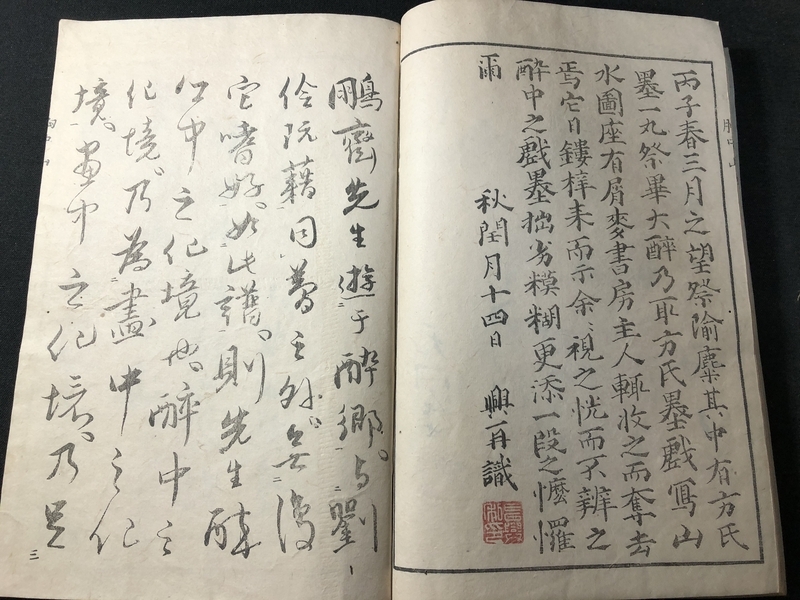 丙子春三月之望祭隃麋其中有方氏
墨一丸祭畢大醉乃取方氏墨戲寫山
水圖座有屑麥書房主人輙收之而奪去
焉它日鏤梓来而示余〻視之恍而不辨之
醉中之戲墨拙劣糢糊更添一段之懡㦬
爾
秋閏月十四日 興再識
鵬齋先生遊于醉鄉。与劉
伶阮藉同夢其外。無復
它嗜好。如此譜。則先生醉
中之化境也。醉中之
化境。乃為畫中之化
境。畫中之化境。乃是
三